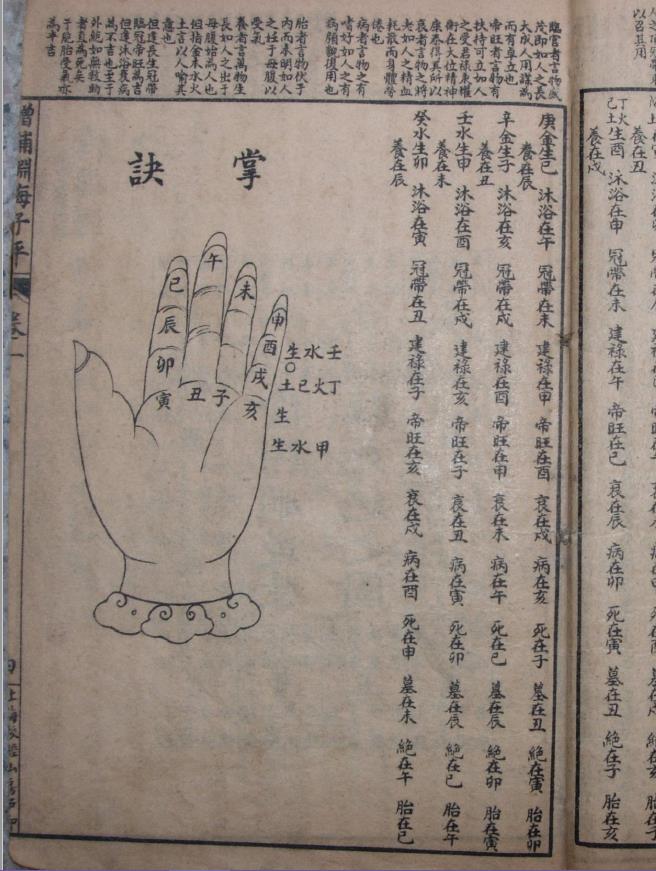 以召其用
丁火己土生酉 沐浴在申 冠帶在未 建祿在午 帝旺在巳 衰在辰 病在卯 死在寅 墓在丑 絕在子 胎在亥
養在戌
養在丑
臨官者言物成
茂即如人之長
大成人用謀為
而有卓立也
帝旺者言物有
扶持可立如人
之受君祿秉權
衡在大位精神
康泰得其所以
衰者言物之將
老如人之精血
耗散而身體勞
倦也
病者言物之有
嗜好如人之有
病煩觀復用也
胎者言物伏于
內而未明如人
之妊于母腹以
受氣
養者言萬物生
長如人之出于
母腹始為人也
但指金木水火
土言以人喻其
意也
但逢長生冠帶
臨官帝旺萬吉
但逢沐浴衰病
為不吉也至于
外絕如無救助
者直為死矣
子死胎受氣亦
為半吉
庚金生巳 沐浴在午 冠帶在未 建祿在申 帝旺在酉 衰在戌 病在亥 死在子 墓在丑 絕在寅 胎在卯
養在辰
辛金生子 沐浴在亥 冠帶在戌 建祿在酉 帝旺在申 衰在未 病在午 死在巳 墓在辰 絕在卯 胎在寅
養在丑
壬水生申 沐浴在酉 冠帶在戌 建祿在亥 帝旺在子 衰在丑 病在寅 死在卯 墓在辰 絕在巳 胎在午
養在未
癸水生卯 沐浴在寅 冠帶在丑 建祿在子 帝旺在亥 衰在戌 病在酉 死在申 墓在未 絕在午 胎在巳
養在辰
掌訣
壬水生
丁火己土
生
甲水生
午
未
巳
申
辰
酉
卯
戌
寅
丑
子
亥
增補淵海子平
卷一